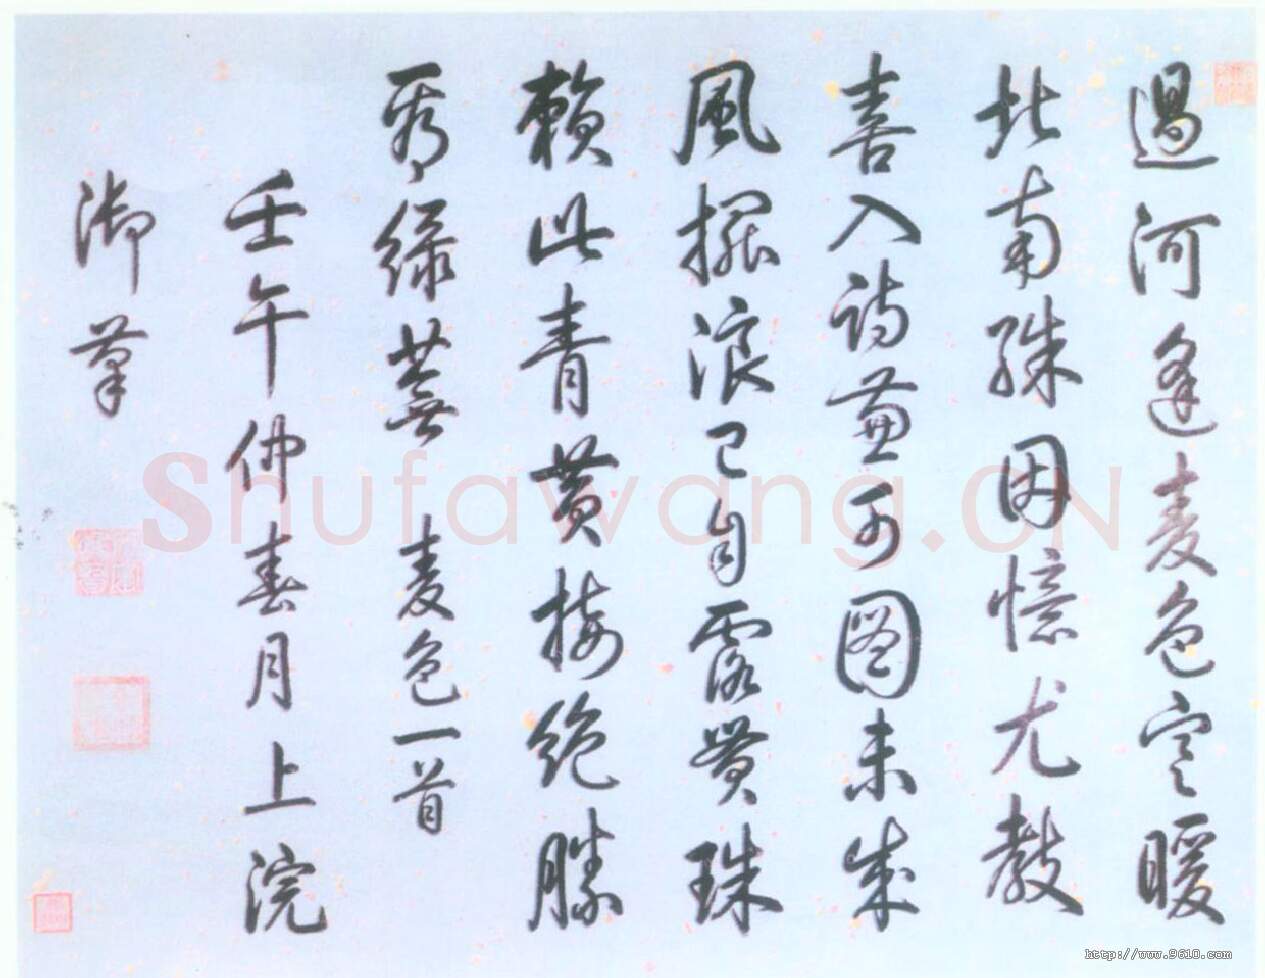 過河逢麦色寒暖
北南殊因憶尤教
喜入詩兼可图未成
風摆浪已自露貫珠
賴此青黄接絶勝
秀緑蕪 麦色一首
壬午仲春月上浣
御筆
Shufawang.CN
http://www.9610.com